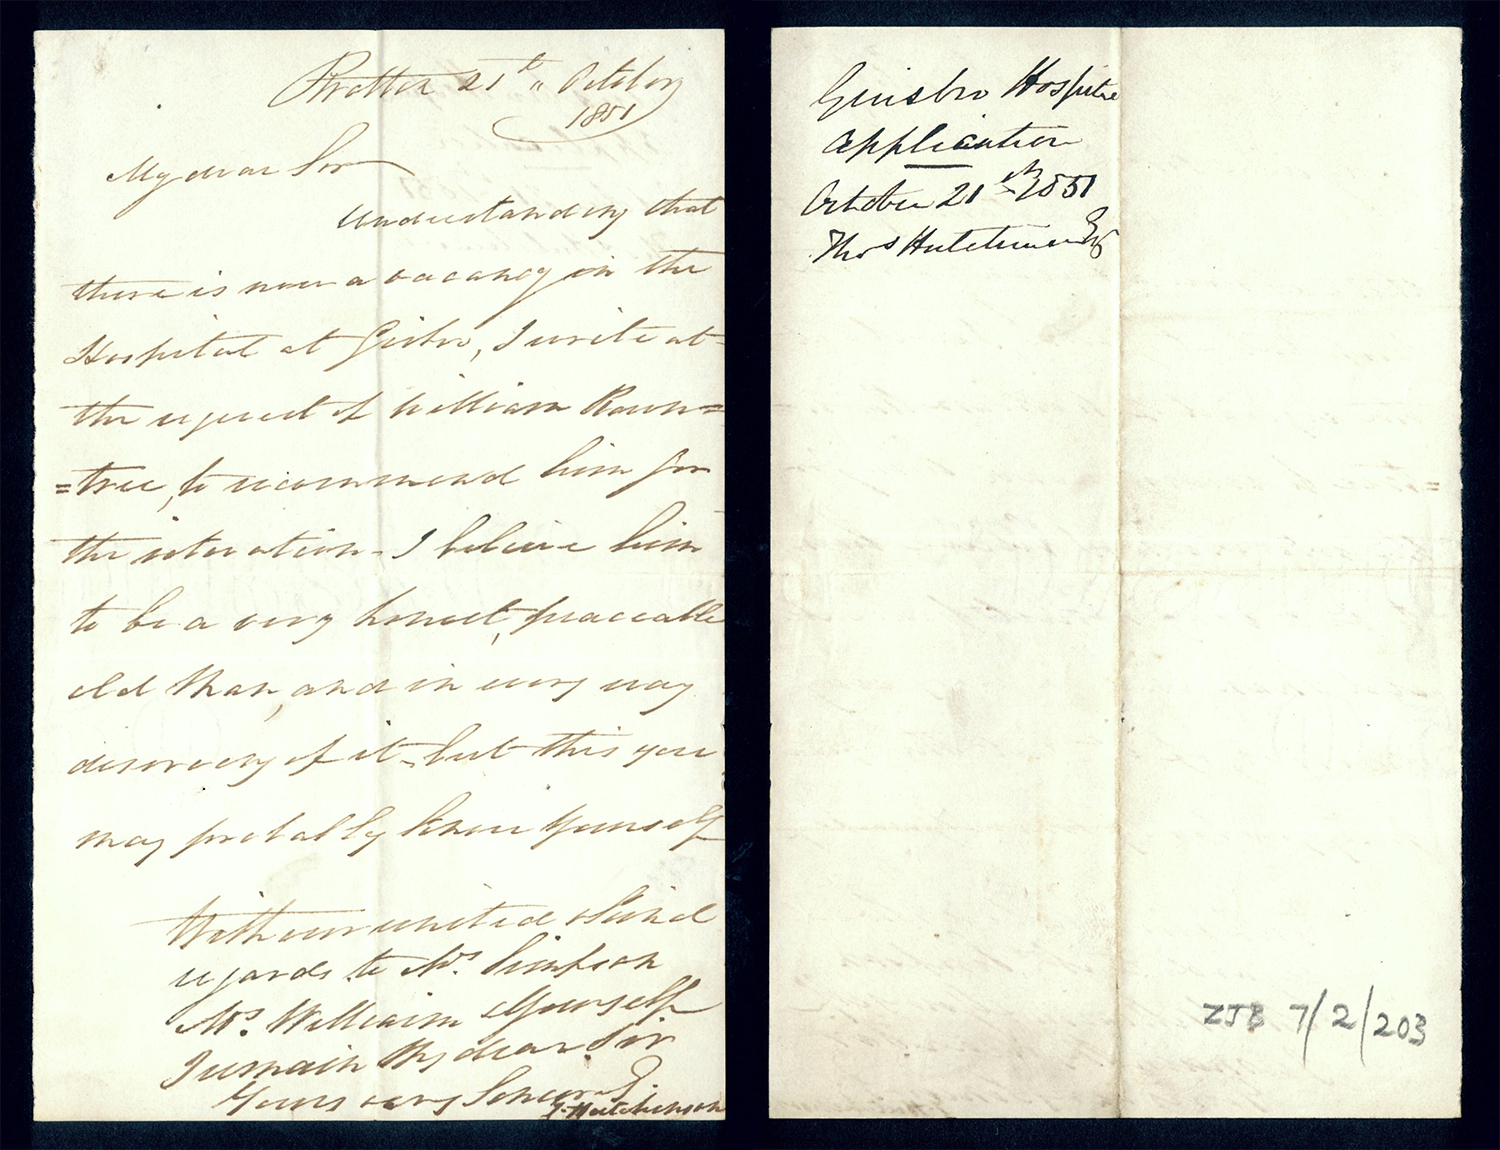 21st October
1851
My dear Sir
Understanding that
there is now a vacancy in the
Hospital at Gisbro, I write at
the request of William Rown=
=tree, to recommend him for
the situation - I believe him
to be a very honest, peaceable
old Man, and in every way
deserving of it - but this you
may probably know yourself
With our united & kind
regards to Mrs. Simpson
Mrs. William & Yourself
I remain My dear Sir
Yours very Sincerely
T. Hutchinson
Guisbro Hospital
application
October 21st 1851
Thos Hutchinson Esq
ZJB 7/2/203